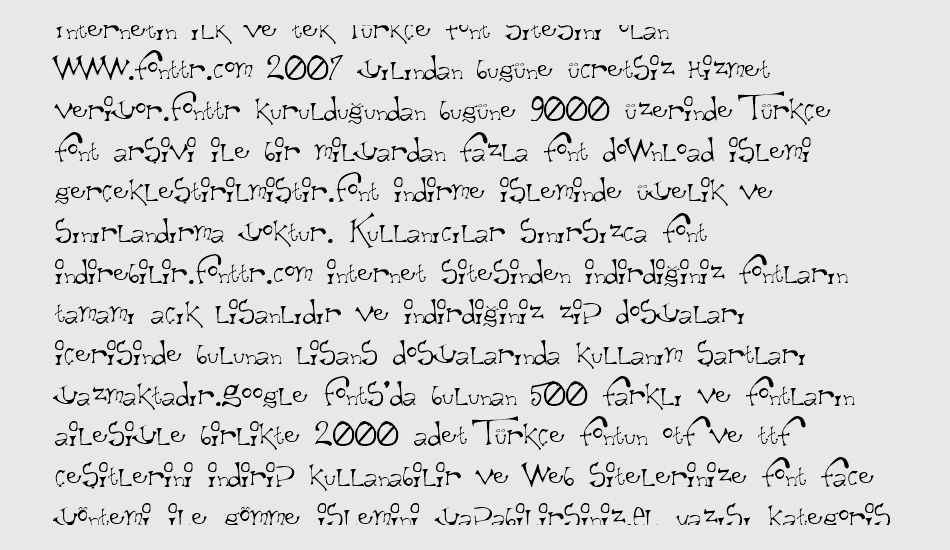 internetin ilk ve tek Türkçe font sitesini olan
WWW.fonttr.com 2007 yılından bugüne ücretsiz Hizmet
veriyor.fonttr kurulduğundan bugüne 9000 üzerinde Türkçe
font arşivi ile bir milyardan fazla font doWnLoad işlemi
gerçekleştirilmiştir.font indirme işleminde üyelik ve
sınırlandırma yoktur. Kullanıcılar sınırsızca font
indirebilir.fonttr.com internet sitesinden indirdiğiniz fontların
tamamı açık lisanlıdır ve indirdiğiniz zip dosyaları
içerisinde bulunan lisans dosyalarında kullanım şartları
yazmaktadır.google fonts'da bulunan 500 farklı ve fontların
ailesiyle birlikte 2000 adet Türkçe fontun otf ve ttf
çeşitlerini indirip kullanabilir ve Web sitelerinize font face
yöntemi ile gömme işlemini yapabilirsiniz.el yazısı kategoris